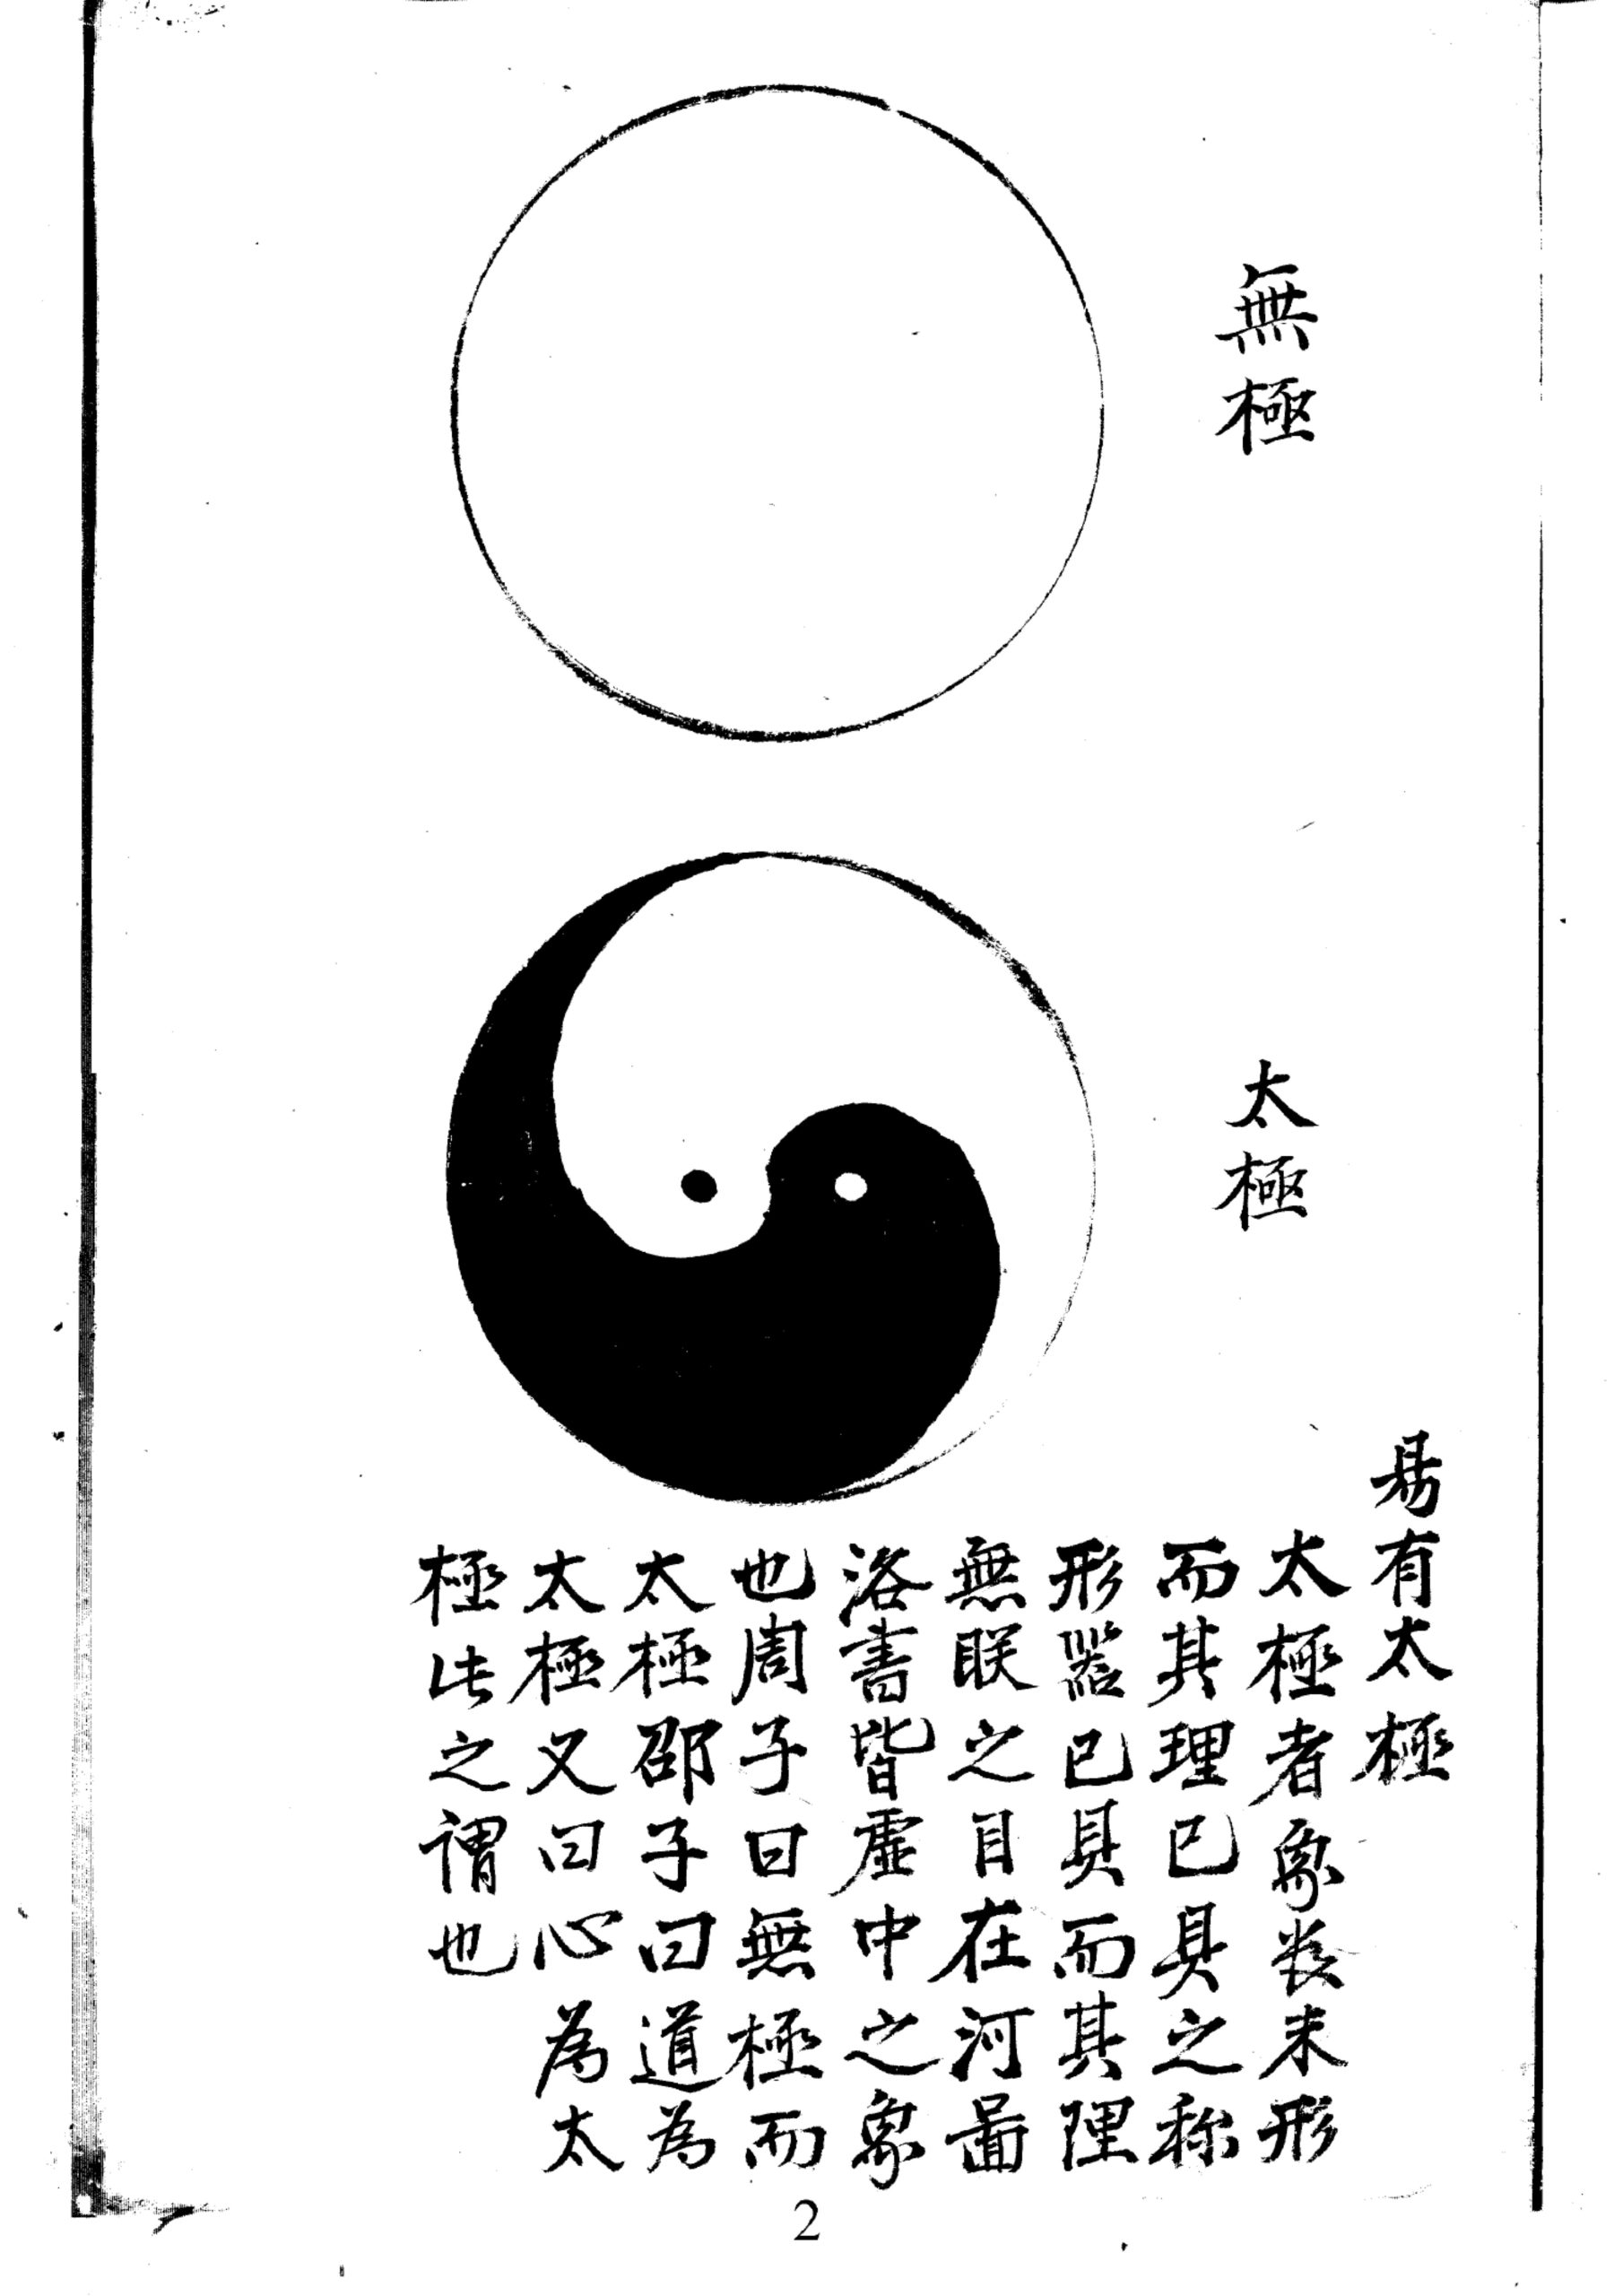 無極
太極
易有太極
太極者象数未形
而其理已具之称
形器已具而其理
無眹之目在河啚
洛書皆虛中之象
也周子曰無極而
太極邵子曰道為
太極又曰心為太
極此之謂也
2